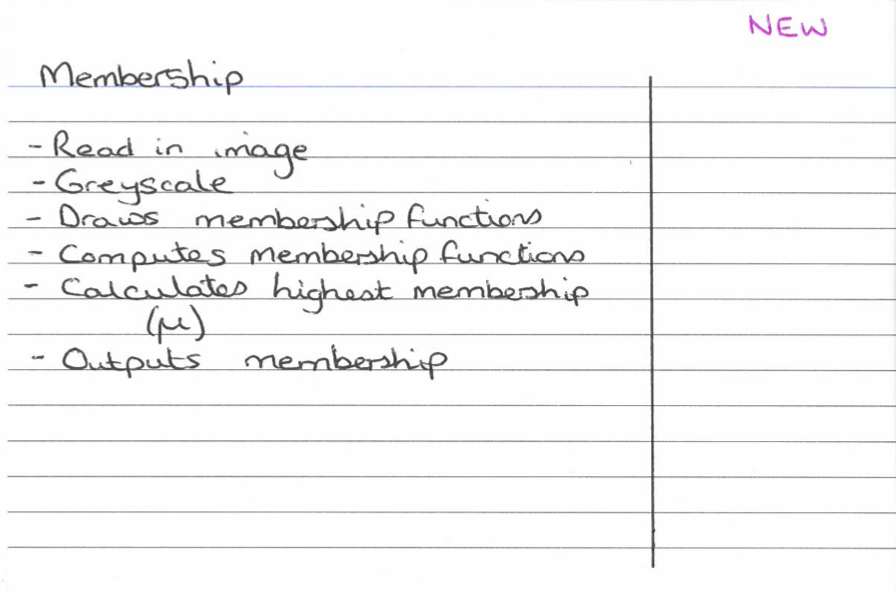 NEW
Membership
- Read in image
- Greyscale
- Draws membership functions
- Computes membership functions
- Calculates highest membership
(μ)
- Outputs membership